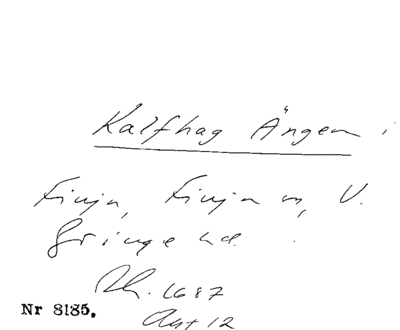 Kalfhag Ängen i
Finja, Finja sn, V.
Göinge hd.
Rh. 1687
Akt 12
Nr 8185.